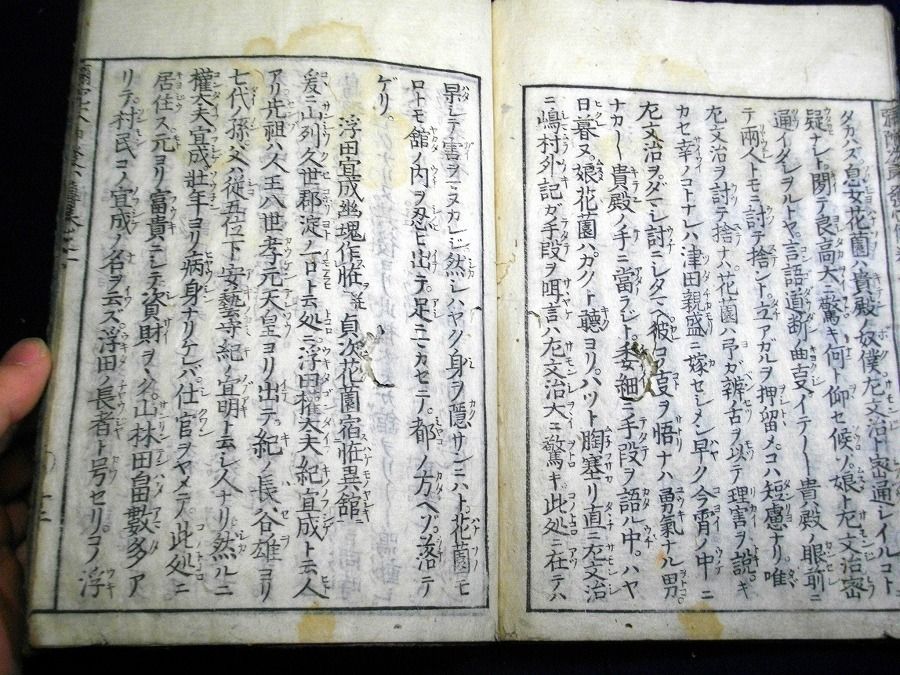 タカハズ息女花園ハ貴殿ノ奴僕左文治ト密通シイルコト
疑ナシト聞テ良高大ニ驚キ何ト仰セ候ゾ娘ト左文治密
通イタシヲルトヤ言語道断ノ曲事イデ一一貴殿ノ眼前ニ
テ両人トモニ討テ捨ント立アガルヲ押留メコハ短慮ナリ唯
左文治ヲ討テ捨ナバ花園ハ弓ガ弁舌ヲ以テ理害ヲ説キ
カセ幸ノコトナレハ津田親盛ニ嫁セシメン早ク今宵ノ中ニ
左文治ヲダマシ討ニシタマヘ彼コノ事ヲ悟ナハ勇氣ナル男
ナカ一一貴殿ノ手ニ當ラジト委細ニ手段ヲ語ル中ハヤ
日暮ヌ娘花園ハカクト聽ヨリハツト胸塞リ直ニ左文治
ニ嶋村外記ガ手段ヲ咡言ハ左文治大ニ驚キ此処ニ在テハ
果シテ害ヲマヌカレジ然レハヤク身ヲ隠サンニハト花園モ
ロトモ舘ノ内ヲ忍ヒ出テ足ニマカセテ都ノ方ヘゾ落テ
ゲリ
浮田宜成幽塊作恠 並 貞次花園宿恠異舘
爰ニ山州久世郡淀ノ一口ト云処ニ浮田權大夫紀宜成ト云人
アリ先祖ハ人王八世孝元天皇ヨリ出テ紀ノ長谷雄ヨリ
七代ノ孫父ハ従五位下安藝守紀ノ宜明ト云シ人ナリ然ルニ
權大夫宜成壯年ヨリ病身ナリケレバ仕官ヲヤメテ此処ニ
居住ス元ヨリ富貴ニシテ資財ヲヽク山林田畠數多ア
リテ村民コノ宜成ノ名ヲ云ズ浮田ノ長者ト号セリコノ浮